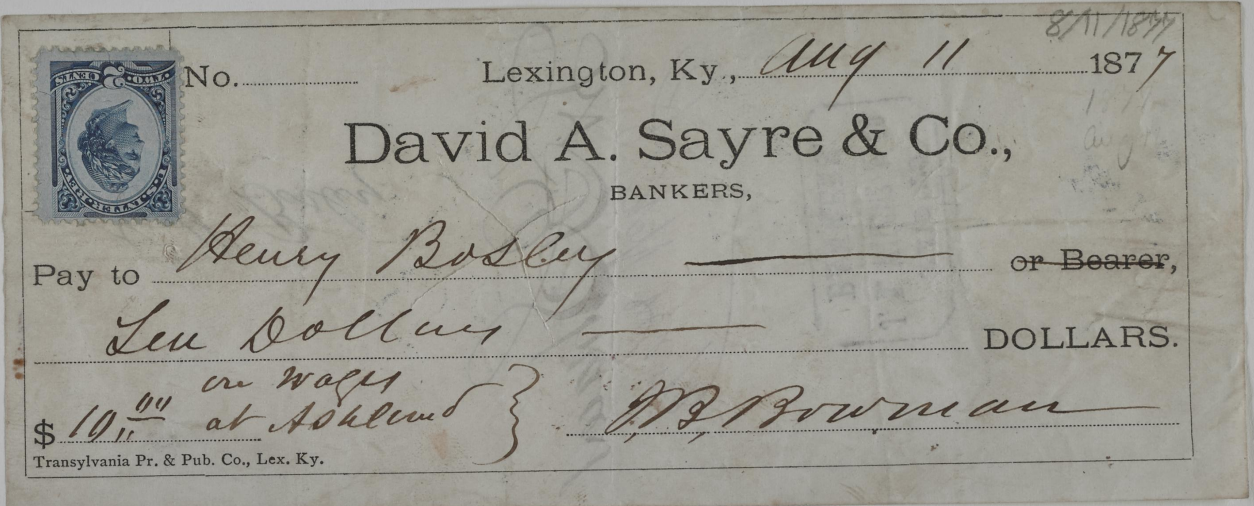 8/11/1877
No. Lexington, Ky., Aug 11 1877
David A. Sayre & Co.,
BANKERS,
Pay to Henry Bosley or Bearer,
Ten Dollars DOLLARS.
on wages
$ 10,,"" at Ashland J.B. Bowman
Transylvania Pr. & Pub. Co., Lex. Ky.
TWO CENTS 2
U.S. INTER. REV.